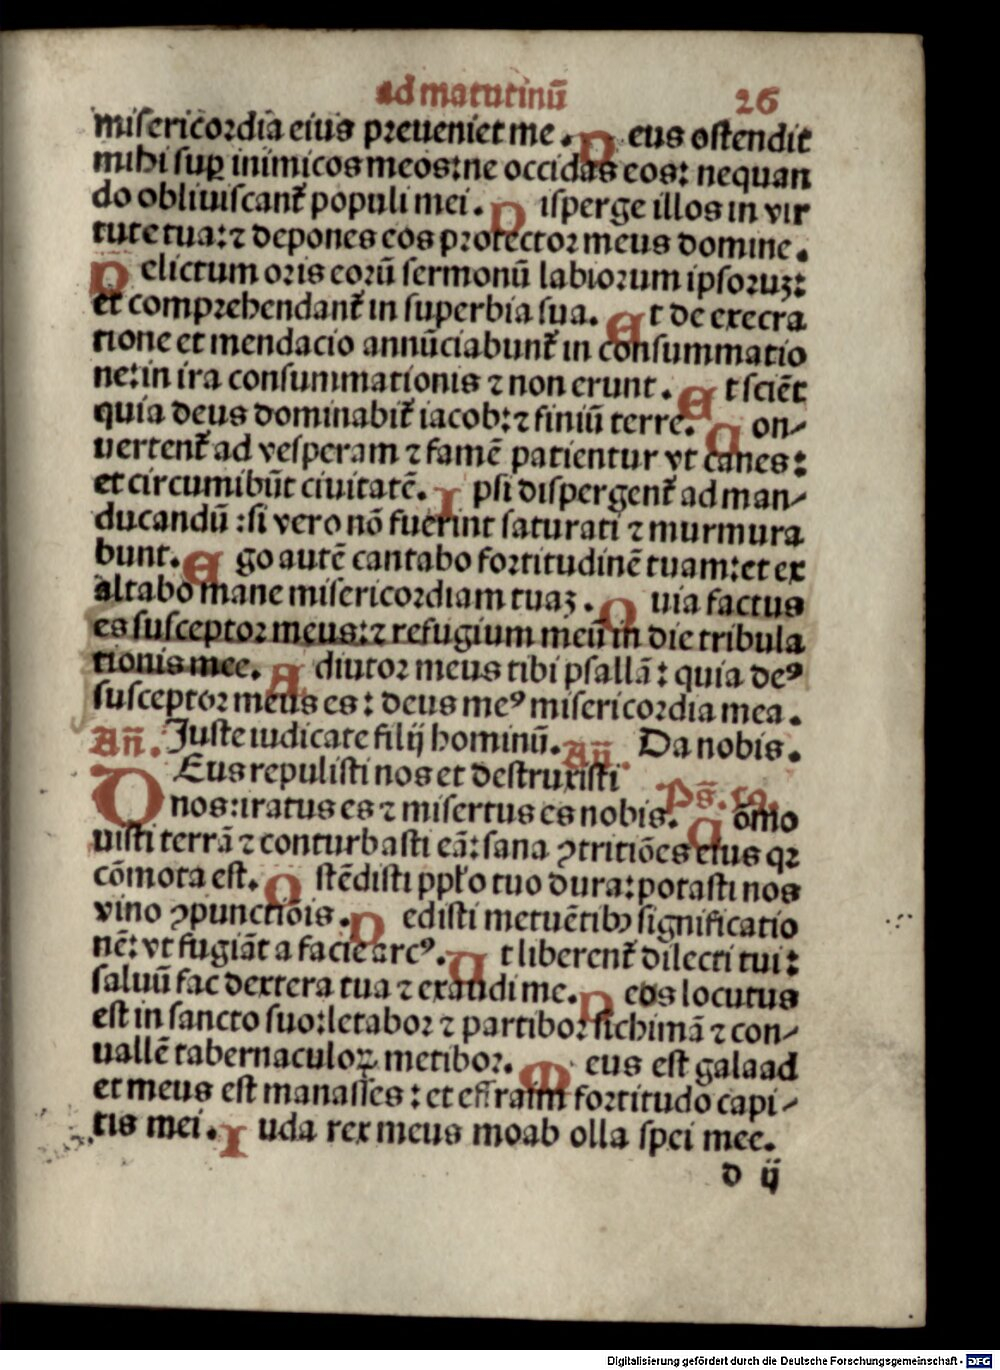 ad matutinū 26
misericordia eius preueniet me . Deus ostendit
mihi suꝑ inimicos meos: ne occidas eos: nequan
do obliuiscant᷑ populi mei . Disperge illos in vir
tute tua: ⁊ depones eos protector meus domine .
Delictum oris eorū sermonū labiorum ipsoruꝫ:
et comprehendant᷑ in superbia sua. Et de execra
tione et mendacio annūciabunt᷑ in consummatio
ne: in ira consummationis ⁊ non erunt . Et sciēt
quia deus dominabit᷑ iacob: ⁊ finiū terre. Con-
uertent᷑ ad vesperam ⁊ famē patientur vt canes:
et circumibūt ciuitatē. Ipsi dispergent᷑ ad man-
ducandū : si vero nō fuerint saturati ⁊ murmura
bunt. Ego autē cantabo fortitudinē tuam: et ex
altabo mane misericordiam tuaꝫ . Quia factus
es susceptor meus: ⁊ refugium meū in die tribula
tionis mee. Adiutor meus tibi psallā: quia deꝰ
susceptor meus es: deus meꝰ misericordia mea .
Añ. Juste iudicate filij hominū. Añ. Da nobis .
DEus repulisti nos et destruxisti Ps̄. 59.
nos: iratus es ⁊ misertus es nobis. Cōmo
uisti terrā ⁊ conturbasti eā: sana ꝯtritiōes eius qꝛ
cōmota est. Ostēdisti ppło tuo dura: potasti nos
vino ꝯpunctiōis . Dedisti metuētibꝫ significatio
nē: vt fugiāt a facie arcꝰ. Ut liberent᷑ dilecti tui:
saluū fac dextera tua ⁊ exaudi me. Deus locutus
est in sancto suo: letabor ⁊ partibor sichimā ⁊ con-
uallē tabernaculoꝝ metibor. Meus est galaad
et meus est manasses: et effraim fortitudo capi-
tis mei . Iuda rex meus moab olla spei mee.
d ij
Digitalisierung gefördert durch die Deutsche Forschungsgemeinschaft - DFG